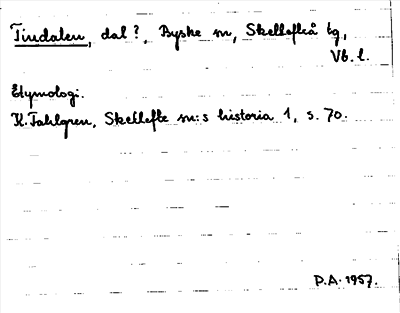 Tindalen, dal?, Byske sn, Skellefteå tg,
Vb. l.
Etymologi.
K. Fahlgren, Skellefte sn:s historia 1, s. 70.
P.A. 1957.